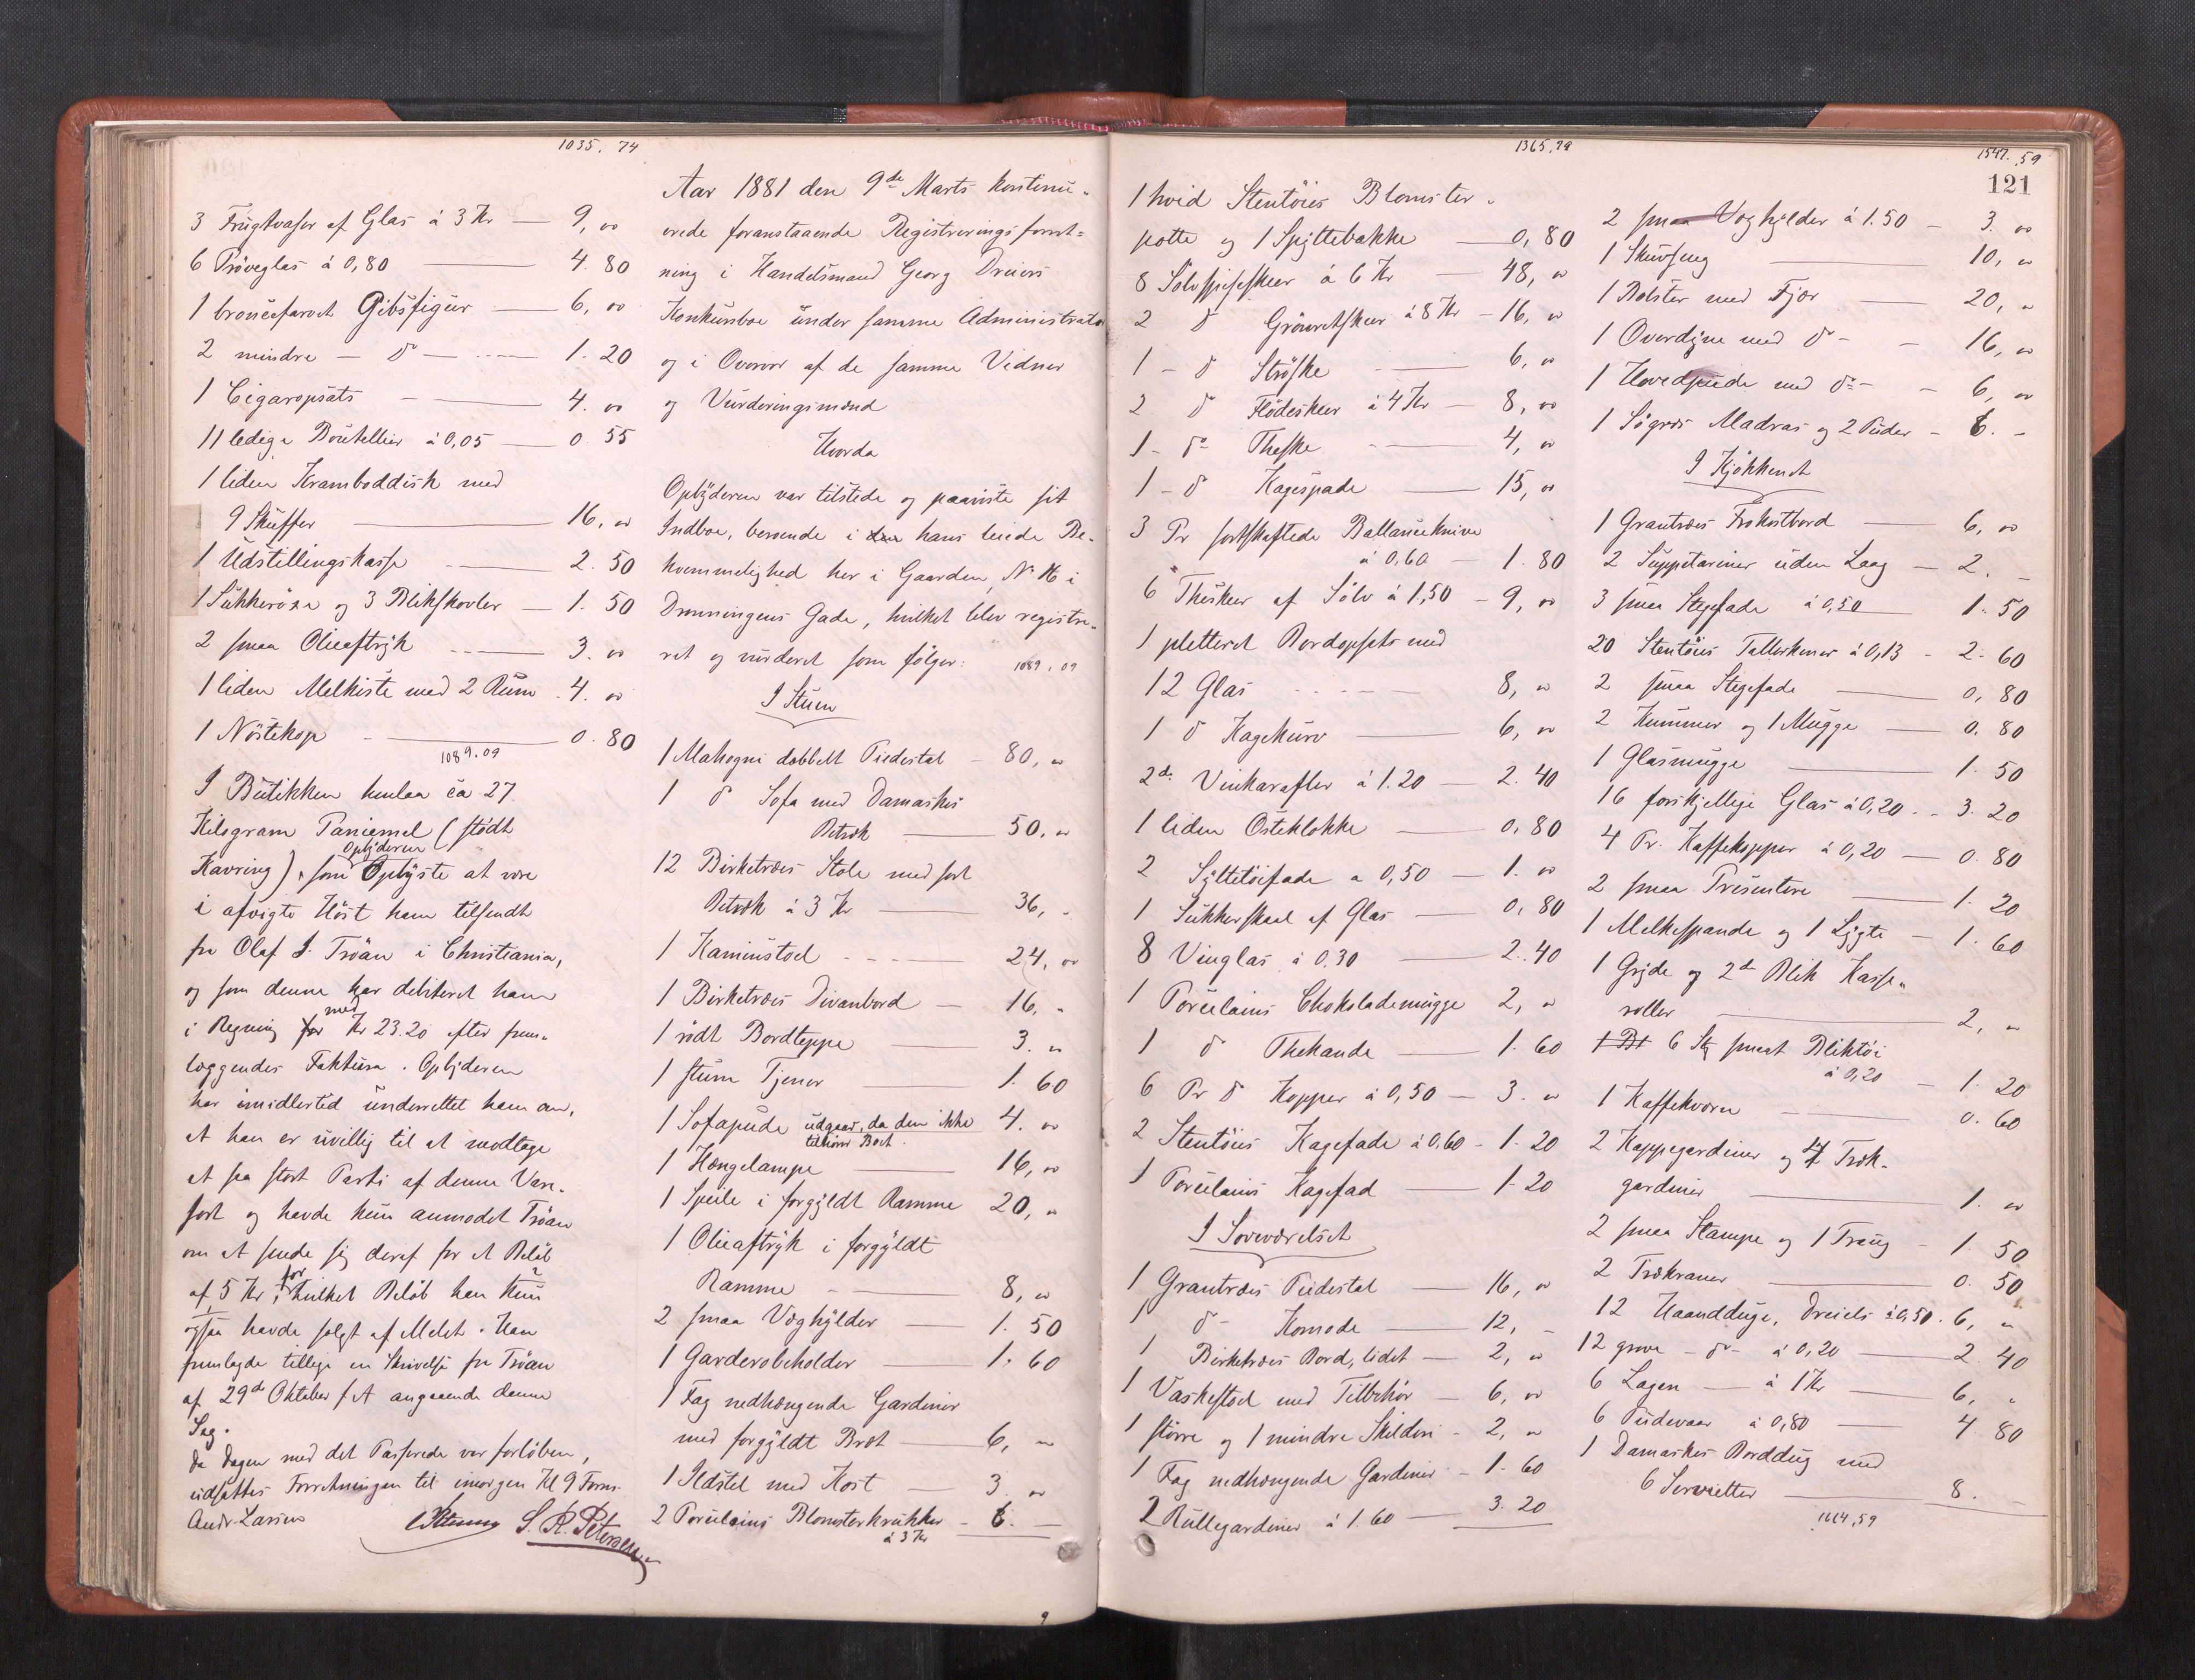 1035. 74
3 Frugtvaser af Glas à 3 Kr — 9, 00
6 Prøveglas à 0,80 — 4. 80
1 broncefarvet Gibsfigur — 6, 00
2 mindre — do — 1. 20
1 Cigaropsats — 4. 00
11 ledige Bouteller à 0,05 — 0. 55
1 liden Kramboddisk med
9 Skuffer — 16, 00
1 Udstillingskasse — 2. 50
1 Sukkerøxe og 3 Blikskovler — 1. 50
2 smaa Olieaftryk — 3. 00
1 liden Melkiste med 2 Rum — 4. 00
1 Nøstekop — 0. 80
1089.09
I Butikken henlaa ca 27
Kilogram Paniermel (stødt
Kavring), som Opbyderen oplyste at være
i afvigte Høst ham tilsendt
fra Olaf J. Trøan i Christiania,
og som denne har debiteret ham
i Regning for med Kr 23.20 efter frem-
læggendes Faktura. Opbyderen
har imidlertid underrettet ham om,
at han er uvillig til at modtage
et saa stort Parti af denne Vare-
sort og havde kun anmodet Trøan
om at sende sig deraf for et Beløb
af 5 Kr, for hvilket Beløb han kun
ogsaa havde solgt af Melet. Han
fremlagde tillige en Skrivelse fra Trøan
af 29de Oktober f A angaaende denne
Sag.
Da Dagen med det Passerede var forløben,
udsattes Forretningen til imorgen Kl 9 Form.
Andr Larsen S. R. Petersen
Aar 1881 den 9de Marts kontinu-
erede foranstaaende Registreringsforret-
ning i Handelsmand Georg Dreiers
Konkursbo under samme Administrator
og i Overvær af de samme Vidner
og Vurderingsmænd
Hvorda
Opbyderen var tilstede og paaviste sit
Indbo, beroende i den hans leiede Be-
kvemmelighed her i Gaarden No 16 i
Dronningens Gade, hvilket blev registre-
ret og vurderet som følger: 1089,09
I Stuen
1 Mahogni dobbelt Piedestal — 80, 00
1 do Sofa med Damaskes
Betræk — 50, 00
12 Birketræs Stole med sort
Betræk à 3 Kr — 36, -
1 Kaminstol — 24, 00
1 Birketræs Divanbord — 16, -
1 rødt Bordteppe — 3. 00
1 stum Tjener — 1. 60
1 Sofapude udgaar, da den ikke 4. 00
tilhører Boet.
1 Hængelampe — 16, 00
1 Speile i forgyldt Ramme 20, 00
1 Olieaftryk i forgyldt
Ramme — 8, 00
2 smaa Væghylder — 1. 50
1 Garderobeholder — 1. 60
1 Fag nedhængende Gardiner
med forgyldt Bræt — 6, 00
1 Ildstel med Kost — 3. 00
2 Porcelains Blomsterkrukker — 6. -
à 3 Kr
9
1365.79
1 hvid Stentøies Blomster-
potte og 1 Spyttebakke — 0, 80
8 Sølvspiseskeer à 6 Kr — 48, 00
2 do Grønretskeer à 8 Kr — 16, 00
1 - do Strøske — 6, 00
2 do Flødeskeer à 4 Kr — 8, 00
1 - do Theske — 4, 00
1 - do Kagespade — 15, 00
3 Pr sortskaftede Ballanceknive
à 0,60 — 1. 80
6 Theskeer af Sølv à 1,50 — 9, 00
1 pletteret Bordopsats med
12 Glas — 8, 00
1 do Kagekurv — 6, 00
2de Vinkarafler à 1.20 — 2. 40
1 liden Osteklokke — 0. 80
2 Syltetøifade a 0,50 — 1. 00
1 Sukkerskaal af Glas — 0, 80
8 Vinglas à 0.30 — 2. 40
1 Porcelains Chokolademugge 2, 00
1 do Thekande — 1. 60
6 Pr do Kopper à 0,50 — 3. 00
2 Stentøies Kagefade à 0.60 — 1. 20
1 Porcelains Kagefad — 1. 20
I Soveværelset
1 Grantræs Piedestal — 16, 00
1 do - Komode — 12, -
1 Birketræs Bord, lidet — 2, 00
1 Vaskestol med Tilbehør — 6, 00
1 større og 1 mindre Skilderi — 2, 00
1 Fag nedhængende Gardiner — 1. 60
2 Rullegardiner à 1.60 — 3. 20
1547.59
121
2 smaa Væghylder à 1.50 — 3. 00
1 Skuvseng — 10, 00
1 Bolster med Fjær — 20, 00
1 Overdyne med do — 16, 00
1 Hovedpude med do — 6, 00
1 Søgræs Madras og 2 Puder — 6. -
I Kjøkkenet
1 Grantræs Frokostbord — 6, 00
2 Suppeteriner uden Laag — 2. -
3 smaa Stegefade à 0,50 — 1. 50
20 Stentøies Tallerkener à 0,13 — 2. 60
2 smaa Stegefade — 0, 80
2 Kummer og 1 Mugge — 0. 80
1 Glasmugge — 1. 50
16 forskjellige Glas à 0,20 — 3. 20
4 Pr. Kaffekopper à 0,20 — 0. 80
2 smaa Presentere — 1. 20
1 Melkespande og 1 Lygte — 1. 60
1 Gryde og 2de Blik Kasse-
roller — 2, 00
6 Stk smaat Bliktøi
à 0,20 — 1. 20
1 Kaffekværn — 0. 60
2 Kappegardiner og 4 Træk-
gardiner — 1. 00
2 smaa Stampe og 1 Traug — 1. 50
2 Trækraner — 0. 50
12 Haandduge, Dreiels à 0,50 — 6, 00
12 grove — do — à 0,20 — 2. 40
6 Lagen — à 1 Kr — 6, 00
6 Pudevaar à 0,80 — 4. 80
1 Damaskes Borddug med
6 Servietter — 8. -
1664,59